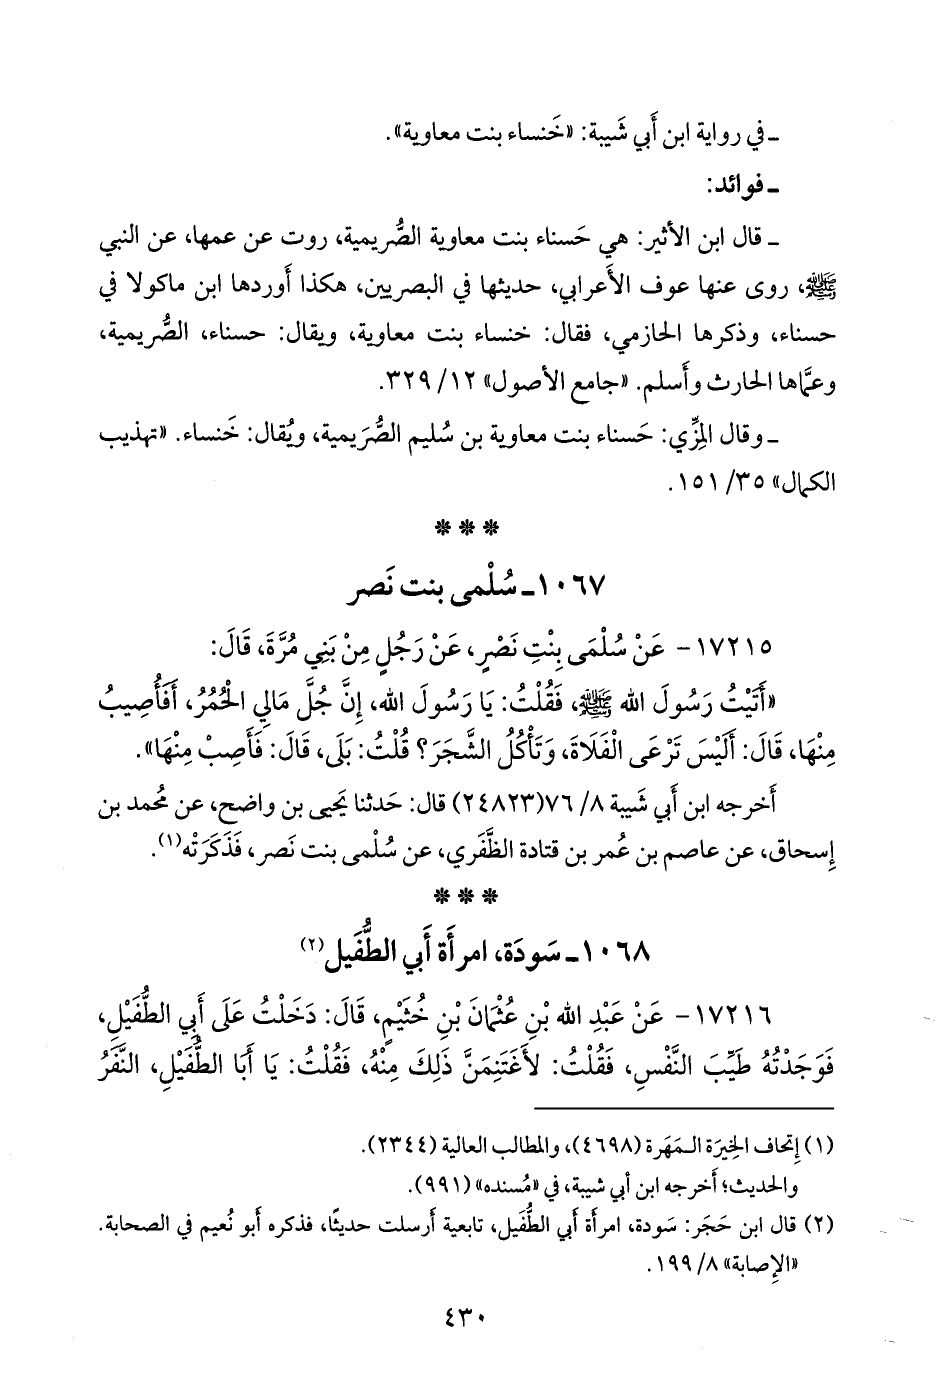 ـ في رواية ابن أَبي شَيبة: «خَنساء بنت معاوية».
ـ فوائد:
ـ قال ابن الأثير: هي حَسناء بنت معاوية الصُّريمية، روت عن عمها، عن النبي
ﷺ، روى عنها عوف الأَعرابي، حديثها في البصريين، هكذا أَوردها ابن ماكولا في
حسناء، وذكرها الحازمي، فقال: خنساء بنت معاوية، ويقال: حسناء، الصُّريمية،
وعمَّاها الحارث وأَسلم. «جامع الأصول» ١٢/ ٣٢٩.
ـ وقال المِزِّي: حَسناء بنت معاوية بن سُليم الصُّرَيمية، ويُقال: خَنساء. «تهذيب
الكمال» ٣٥/ ١٥١.
* * *
١٠٦٧ـ سُلْمى بنت نَصر
١٧٢١٥- عَنْ سُلْمَى بِنْتِ نَصْرٍ، عَنْ رَجُلٍ مِنْ بَنِي مُرَّةَ، قَالَ:
«أَتَيْتُ رَسُولَ الله ﷺ، فَقُلْتُ: يَا رَسُولَ الله، إِنَّ جُلَّ مَالِي الْحُمُرُ، أَفَأُصِيبُ
مِنْهَا، قَالَ: أَلَيْسَ تَرْعَى الْفَلَاةَ، وَتَأْكُلُ الشَّجَرَ؟ قُلْتُ: بَلَى، قَالَ: فَأَصِبْ مِنْهَا».
أَخرجه ابن أَبي شَيبة ٨/ ٧٦(٢٤٨٢٣) قال: حَدثنا يَحيى بن واضح، عن محمد بن
إِسحاق، عن عاصم بن عُمر بن قتادة الظَّفَري، عن سُلْمى بنت نَصر، فَذَكَرَتْه(١).
* * *
١٠٦٨ـ سَودَة، امرأَة أَبي الطُّفَيل(٢)
١٧٢١٦- عَنْ عَبْدِ الله بْنِ عُثْمَانَ بْنِ خُثَيْمٍ، قَالَ: دَخَلْتُ عَلَى أَبِي الطُّفَيْلِ،
فَوَجَدْتُهُ طَيِّبَ النَّفْسِ، فَقُلْتُ: لأَغْتَنِمَنَّ ذَلِكَ مِنْهُ، فَقُلْتُ: يَا أَبَا الطُّفَيْلِ، النَّفَرُ
(١) إِتحاف الخِيرَة الـمَهَرة (٤٦٩٨)، والمطالب العالية (٢٣٤٤).
والحديث؛ أَخرجه ابن أَبي شيبة، في «مُسنده» (٩٩١).
(٢) قال ابن حَجَر: سَودة، امرأَة أَبي الطُّفَيل، تابعية أَرسلت حديثًا، فذكره أَبو نُعيم في الصحابة.
«الإِصابة» ٨/ ١٩٩.
٤٣٠